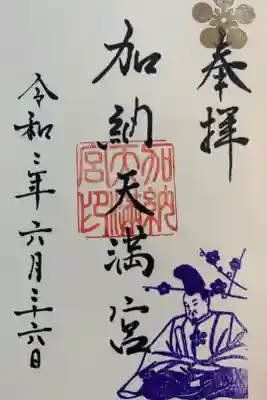 奉拝
加納天満宮
加納
天満
宮印
令和二年六月二十六日